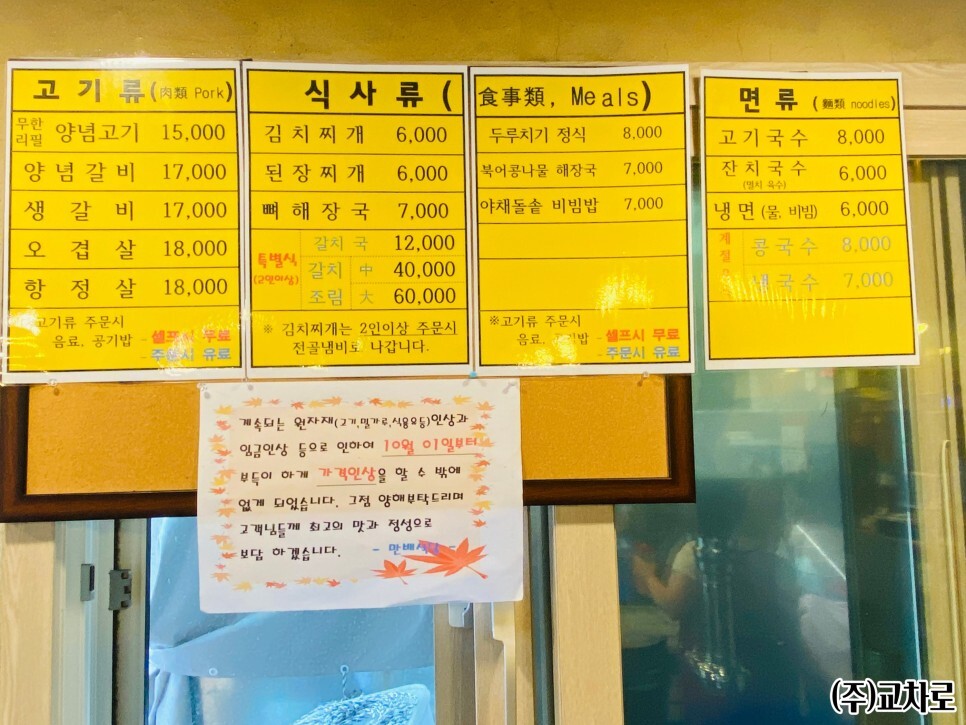 고기류(肉類 Pork)
무한리필 양념고기 15,000
양념갈비 17,000
생갈비 17,000
오겹살 18,000
항정살 18,000
고기류 주문시
음료, 공기밥 - 셀프시 무료
- 주문시 유료
식사류(
김치찌개 6,000
된장찌개 6,000
뼈해장국 7,000
특별식 (2인이상)
갈치국 12,000
갈치조림 中 40,000
大 60,000
※ 김치찌개는 2인이상 주문시
전골냄비로 나갑니다.
食事類, Meals)
두루치기 정식 8,000
북어콩나물 해장국 7,000
야채돌솥 비빔밥 7,000
※고기류 주문시
음료, 공기밥 - 셀프시 무료
- 주문시 유료
면류(麵類 noodles)
고기국수 8,000
잔치국수 6,000
(멸치 육수)
냉면(물, 비빔) 6,000
계절
콩국수 8,000
냉국수 7,000
계속되는 원자재(고기,밀가루,식용유등)인상과
임금인상 등으로 인하여 10월 01일부터
부득이 하게 가격인상을 할 수 밖에
없게 되었습니다. 그점 양해부탁드리며
고객님들께 최고의 맛과 정성으로
보답 하겠습니다. - 만배식당 -
(주)교차로